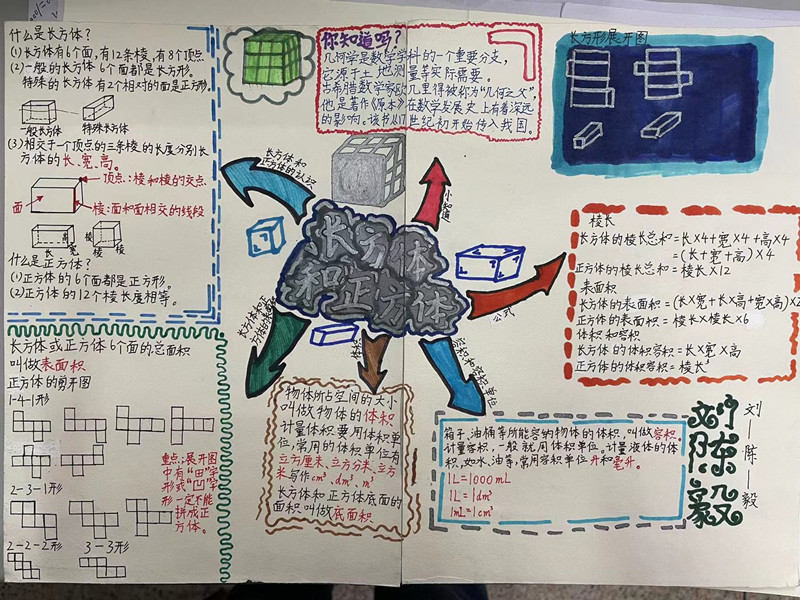 什么是长方体?
(1)长方体有6个面,有12条棱,有8个顶点
(2)一般的长方体6个面都是长方形。
特殊的长方体有2个相对的面是正方形。
一般长方体
特殊长方体
(3)相交于一个顶点的三条棱的长度分别长
方体的长、宽、高。
顶点:棱和棱的交点
面
棱:面和面相交的线段
高
宽
长
棱
棱
棱
什么是正方体?
(1)正方体的6个面都是正方形。
(2)正方体的12个棱长度相等。
长方体或正方体6个面的总面积
叫做表面积
正方体的剪开图
1-4-1形
重点:展开图
中有“田”字
形或“凹”字
形一定不能
拼成正
方体。
2-3-1形
2-2-2形
3-3形
你知道吗?
几何学是数学学科的一个重要分支,
它源于土地测量等实际需要。
古希腊数学家欧几里得被称为“几何之父”,
他是著作《原本》在数学发展史上有着深远
的影响。该书从17世纪初开始传入我国。
长方形展开图
长方体和
正方体的认识
小知道
长方体
和正方体
公式
体积
容积和容积单位
棱长
长方体的棱长总和=长×4+宽×4+高×4
=(长+宽+高)×4
正方体的棱长总和=棱长×12
表面积
长方体的表面积=(长×宽+长×高+宽×高)×2
正方体的表面积=棱长×棱长×6
体积和容积
长方体的体积容积=长×宽×高
正方体的体积容积=棱长³
物体所占空间的大小
叫做物体的体积
计量体积要用体积单
位,常用的体积单位有
立方厘米、立方分米、立方
米写作cm³、dm³、m³
长方体和正方体底面的
面积叫做底面积
箱子、油桶等所能容纳物体的体积,叫做容积。
计量容积,一般就用体积单位。计量液体的体
积,如水、油等,常用容积单位升和毫升。
1L=1000mL
1L=1dm³
1mL=1cm³
刘
陈
毅
刘
一
陈
一
毅